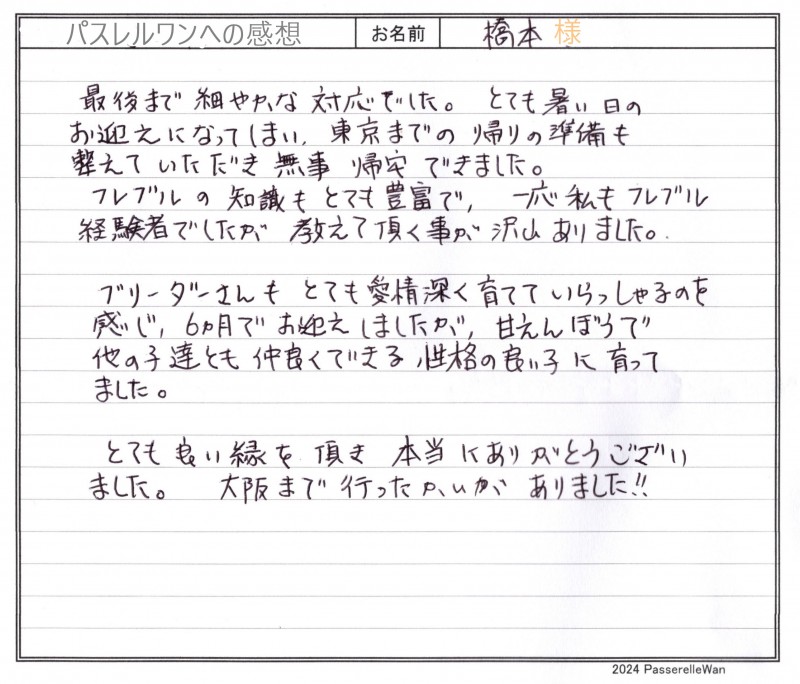 パスレルワンへの感想 お名前 橋本 様
最後まで細やかな対応でした。とても暑い日の
お迎えになってしまい、東京までの帰りの準備も
整えていただき無事帰宅できました。
フレブルの知識もとても豊富で、一応私もフレブル
経験者でしたが教えて頂く事が沢山ありました。
ブリーダーさんもとても愛情深く育てていらっしゃるのを
感じ、6ヵ月でお迎えしましたが、甘えんぼうで
他の子達とも仲良くできる性格の良い子に育って
ました。
とても良い縁を頂き本当にありがとうござい
ました。大阪まで行ったかいがありました!!
2024 PasserelleWan